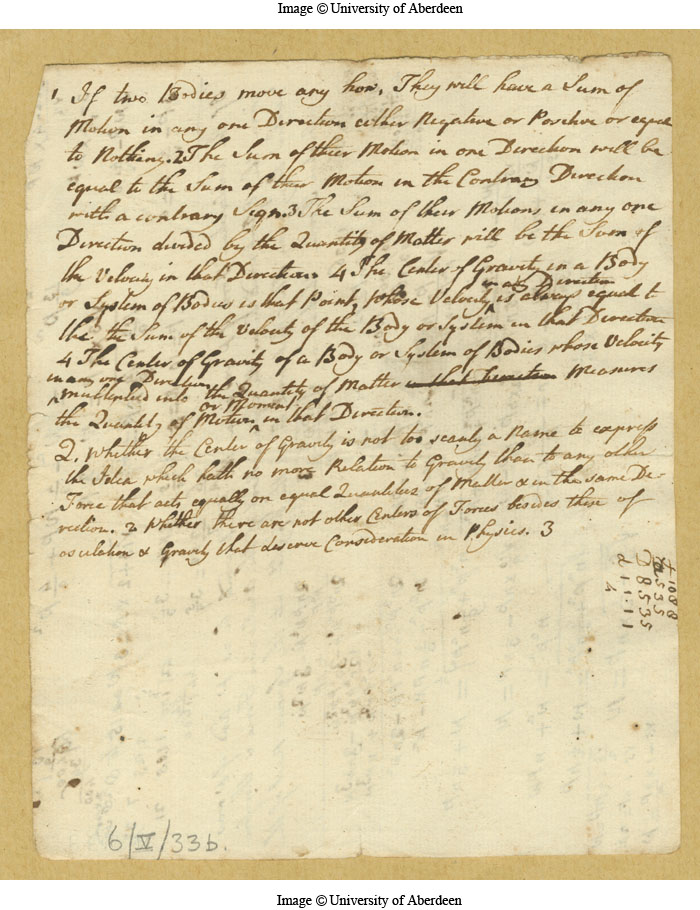 Image © University of Aberdeen
1 If two Bodies move any how, They will have a Sum of
Motion in any one Direction either Negative or Positive or equal
to Nothing. 2 The Sum of their Motion in one Direction will be
equal to the Sum of their Motion in the Contrary Direction
with a contrary Sign. 3 The Sum of their Motions in any one
Direction divided by the Quantity of Matter will be the Sum of
the Velocity in that Direction. 4 The Center of Gravity in a Body
in any Direction
or System of Bodies is that Point, whose Velocity is always equal to
the the Sum of the Velocity of the Body or System in that Direction
4 The Center of Gravity of a Body or System of Bodies whose Velocity
in any one Direction
multiplied into the Quantity of Matter in that Direction Measures
or Moment
the Quantity of Motion in that Direction.
Q. Whether the Center of Gravity is not too scanty a Name to express
the Idea which hath no more Relation to Gravity than to any other
Force that acts equally on equal Quantities of Matter & in the same Di-
rection. 2 Whether there are not other Centers of Forces besides these of
osculation & Gravity that deserve Consideration in Physics. 3
1088
535
8535
1111
4
6/V/33b.
Image © University of Aberdeen